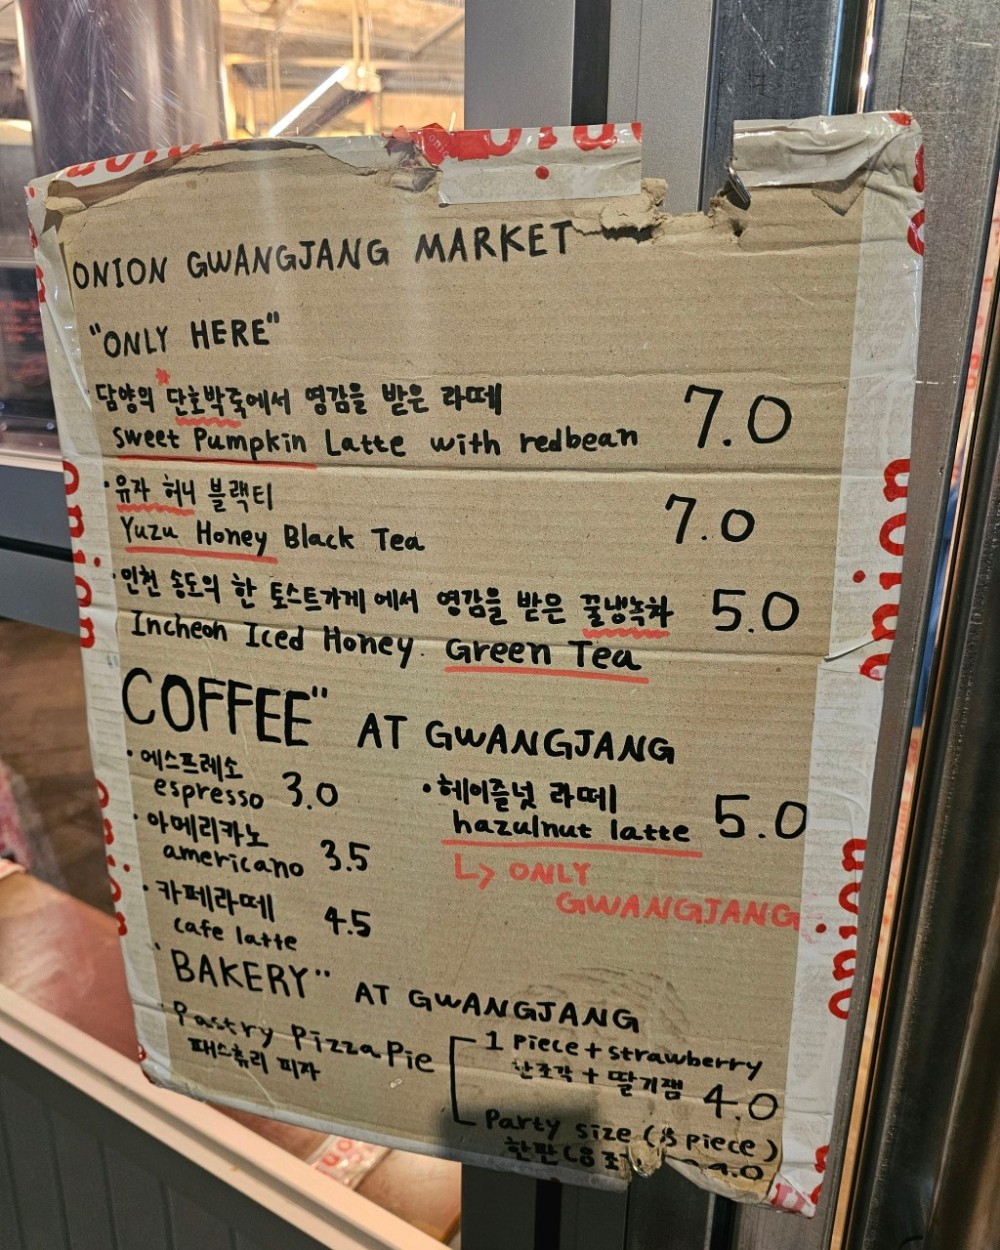 ONION GWANGJANG MARKET
"ONLY HERE"
· 담양의 단호박죽에서 영감을 받은 라떼 7.0
Sweet Pumpkin Latte with redbean
· 유자 허니 블랙티 7.0
Yuzu Honey Black Tea
· 인천 송도의 한 토스트가게에서 영감을 받은 꿀냉녹차 5.0
Incheon Iced Honey. Green Tea
COFFEE" AT GWANGJANG
· 에스프레소
espresso 3.0
· 아메리카노
americano 3.5
· 카페라떼
cafe latte 4.5
· 헤이즐넛 라떼
hazulnut latte 5.0
↳ ONLY
GWANGJANG
"BAKERY" AT GWANGJANG
· Pastry Pizza Pie
패스츄리 피자
1 piece + strawberry
한조각 + 딸기잼 4.0
Party size ( piece )
한판 (8조
onion
onion
onion
onion